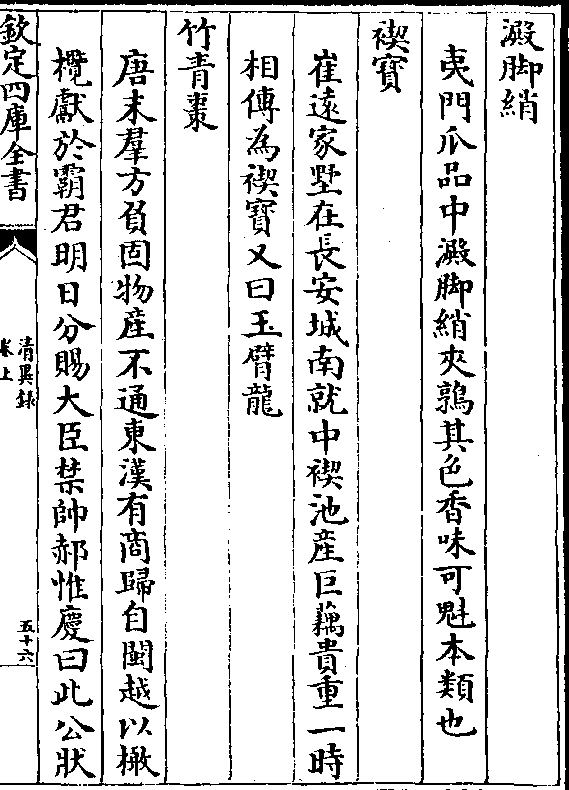 澱脚綃
夷門爪品中澱脚綃夾鶉其色香味可魁本類也
禊寶
崔遠家墅在長安城南就中禊池産巨藕貴重一時
相傳為禊寶又曰玉臂龍
竹青棗
唐末羣方負固物産不通東漢有商歸自閩越以橄
欖獻於霸君明日分賜大臣禁帥郝惟慶曰此公狀
欽定四庫全書
清異錄
卷上
五十六